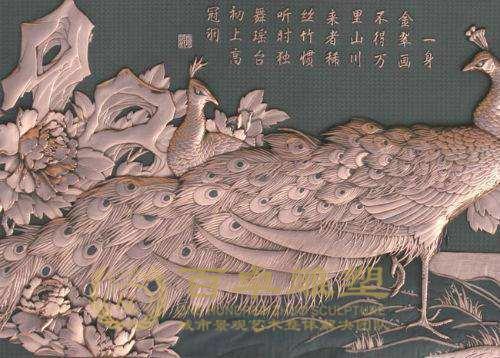 一身
金翠画
不得万
里山川
来者稀
丝竹惯
听时独
舞瑶台
初上高
冠羽
雕塑
SCULPTURE
城市景观艺术整体解决团队